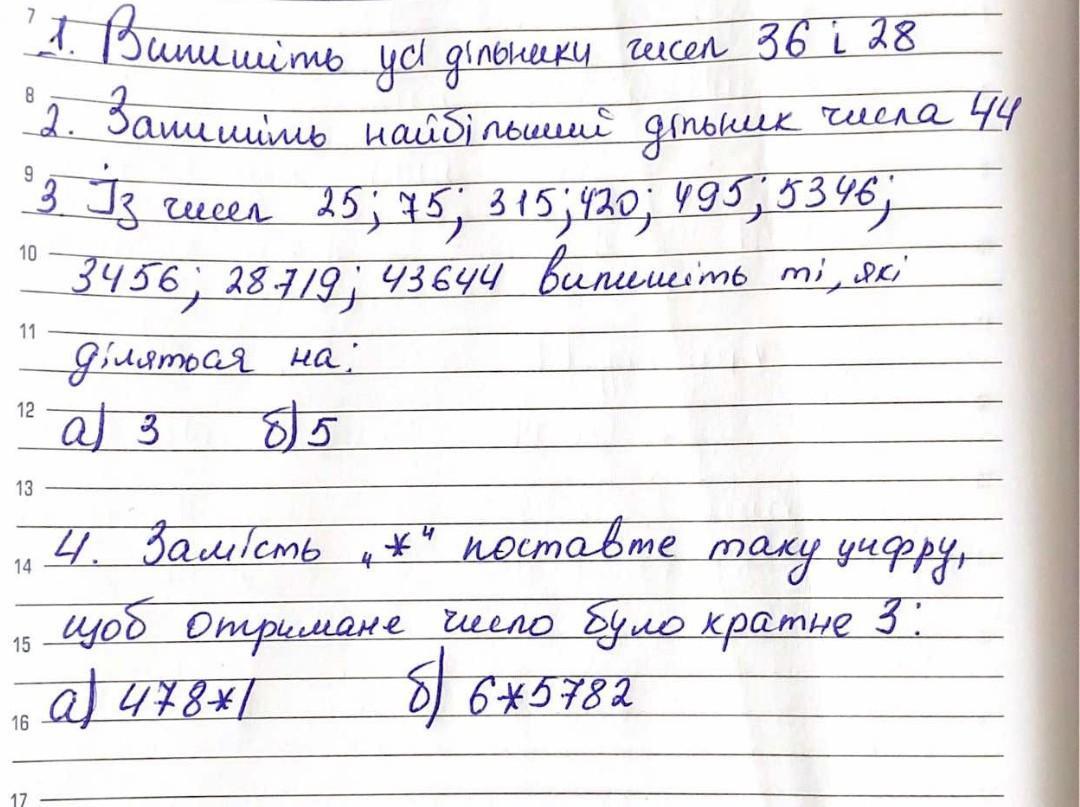 7
1. Випишіть усі дільники чисел 36 і 28
8
2. Запишіть найбільший дільник числа 44
9
3. Із чисел 25; 75; 315; 420; 495; 5346;
10
3456; 28719; 43644 випишіть ті, які
11
діляться на:
12
а) 3 б) 5
13
4. Замість „*“ поставте таку цифру,
14
щоб отримане число було кратне 3:
15
а) 478*1 б) 6*5782
16
17